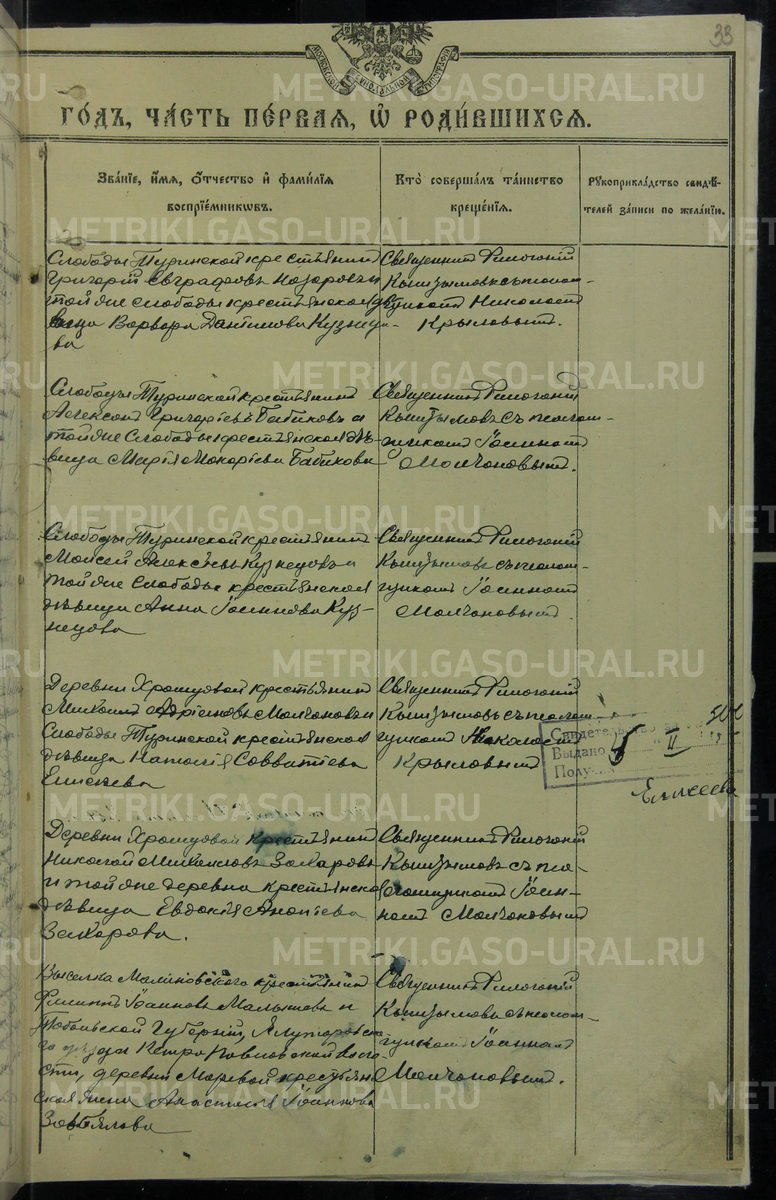 33
МОСКОВСКОЙ СѴНОДАЛЬНОЙ ТИПОГРАФІИ
ГО́ДЪ, ЧА́СТЬ ПЕ́РВАЯ, Ѡ҆ РОДИ́ВШИХСѦ.
Зва́нїе, и҆́мѧ, ѻ҆́тчество и҆ фами́лїѧ
воспрїе́мникѡвъ.
Кто̀ соверша́лъ та́инство
креще́нїѧ.
Рꙋкоприкла́дство свидѣ́-
телей за́писи по жела́нїю.
Слободы Туринской крестьянинъ
Григорій Евграфовъ Назаровъ и
той же слободы крестьянская дѣ-
вица Варвара Данилова Кузнецо-
ва
Священникъ Филогоній
Кыштымовъ съ псалом-
щикомъ Николаемъ
Крыловымъ.
Слободы Туринской крестьянинъ
Алексѣй Григорьевъ Бабиковъ и
той же Слободы крестьянская дѣ-
вица Марія Макарьева Бабикова
Священникъ Филогоній
Кыштымовъ съ псалом-
щикомъ Іоанномъ
Молчановымъ.
Слободы Туринской крестьянинъ
Моисей Алексѣевъ Кузнецовъ и
той же Слободы крестьянская
дѣвица Анна Іоаннова Куз-
нецова
Священникъ Филогоній
Кыштымовъ съ псалом-
щикомъ Іоанномъ
Молчановымъ.
Деревни Хромцовой крестьянинъ
Михаилъ Молчановъ и
Слободы Туринской крестьянская
дѣвица Наталія Савватіева
Елисѣева
Священникъ Филогоній
Кыштымовъ съ псалом-
щикомъ Николаемъ
Крыловымъ
Свидетель
Выдано II
Полу
Елисеева
Деревни Хромцовой крестьянинъ
Николай Михаиловъ Захаровъ
и той же деревни крестьянская
дѣвица Евдокія Ананіева
Захарова.
Священникъ Филогоній
Кыштымовъ съ пса-
ломщикомъ Іоан-
номъ Молчановымъ
Выселка Малиновскаго крестьянинъ
Филиппъ Іоанновъ Малышевъ и
Тобольской Губерніи, Ялуторовска-
го уѣзда Петропавловской воло-
сти, деревни крестьян-
ская жена Анастасія Іоаннова
Завьялова
Священникъ Филогоній
Кыштымовъ съ псалом-
щикомъ Іоанномъ
Молчановымъ.
METRIKI.GASO-URAL.RU